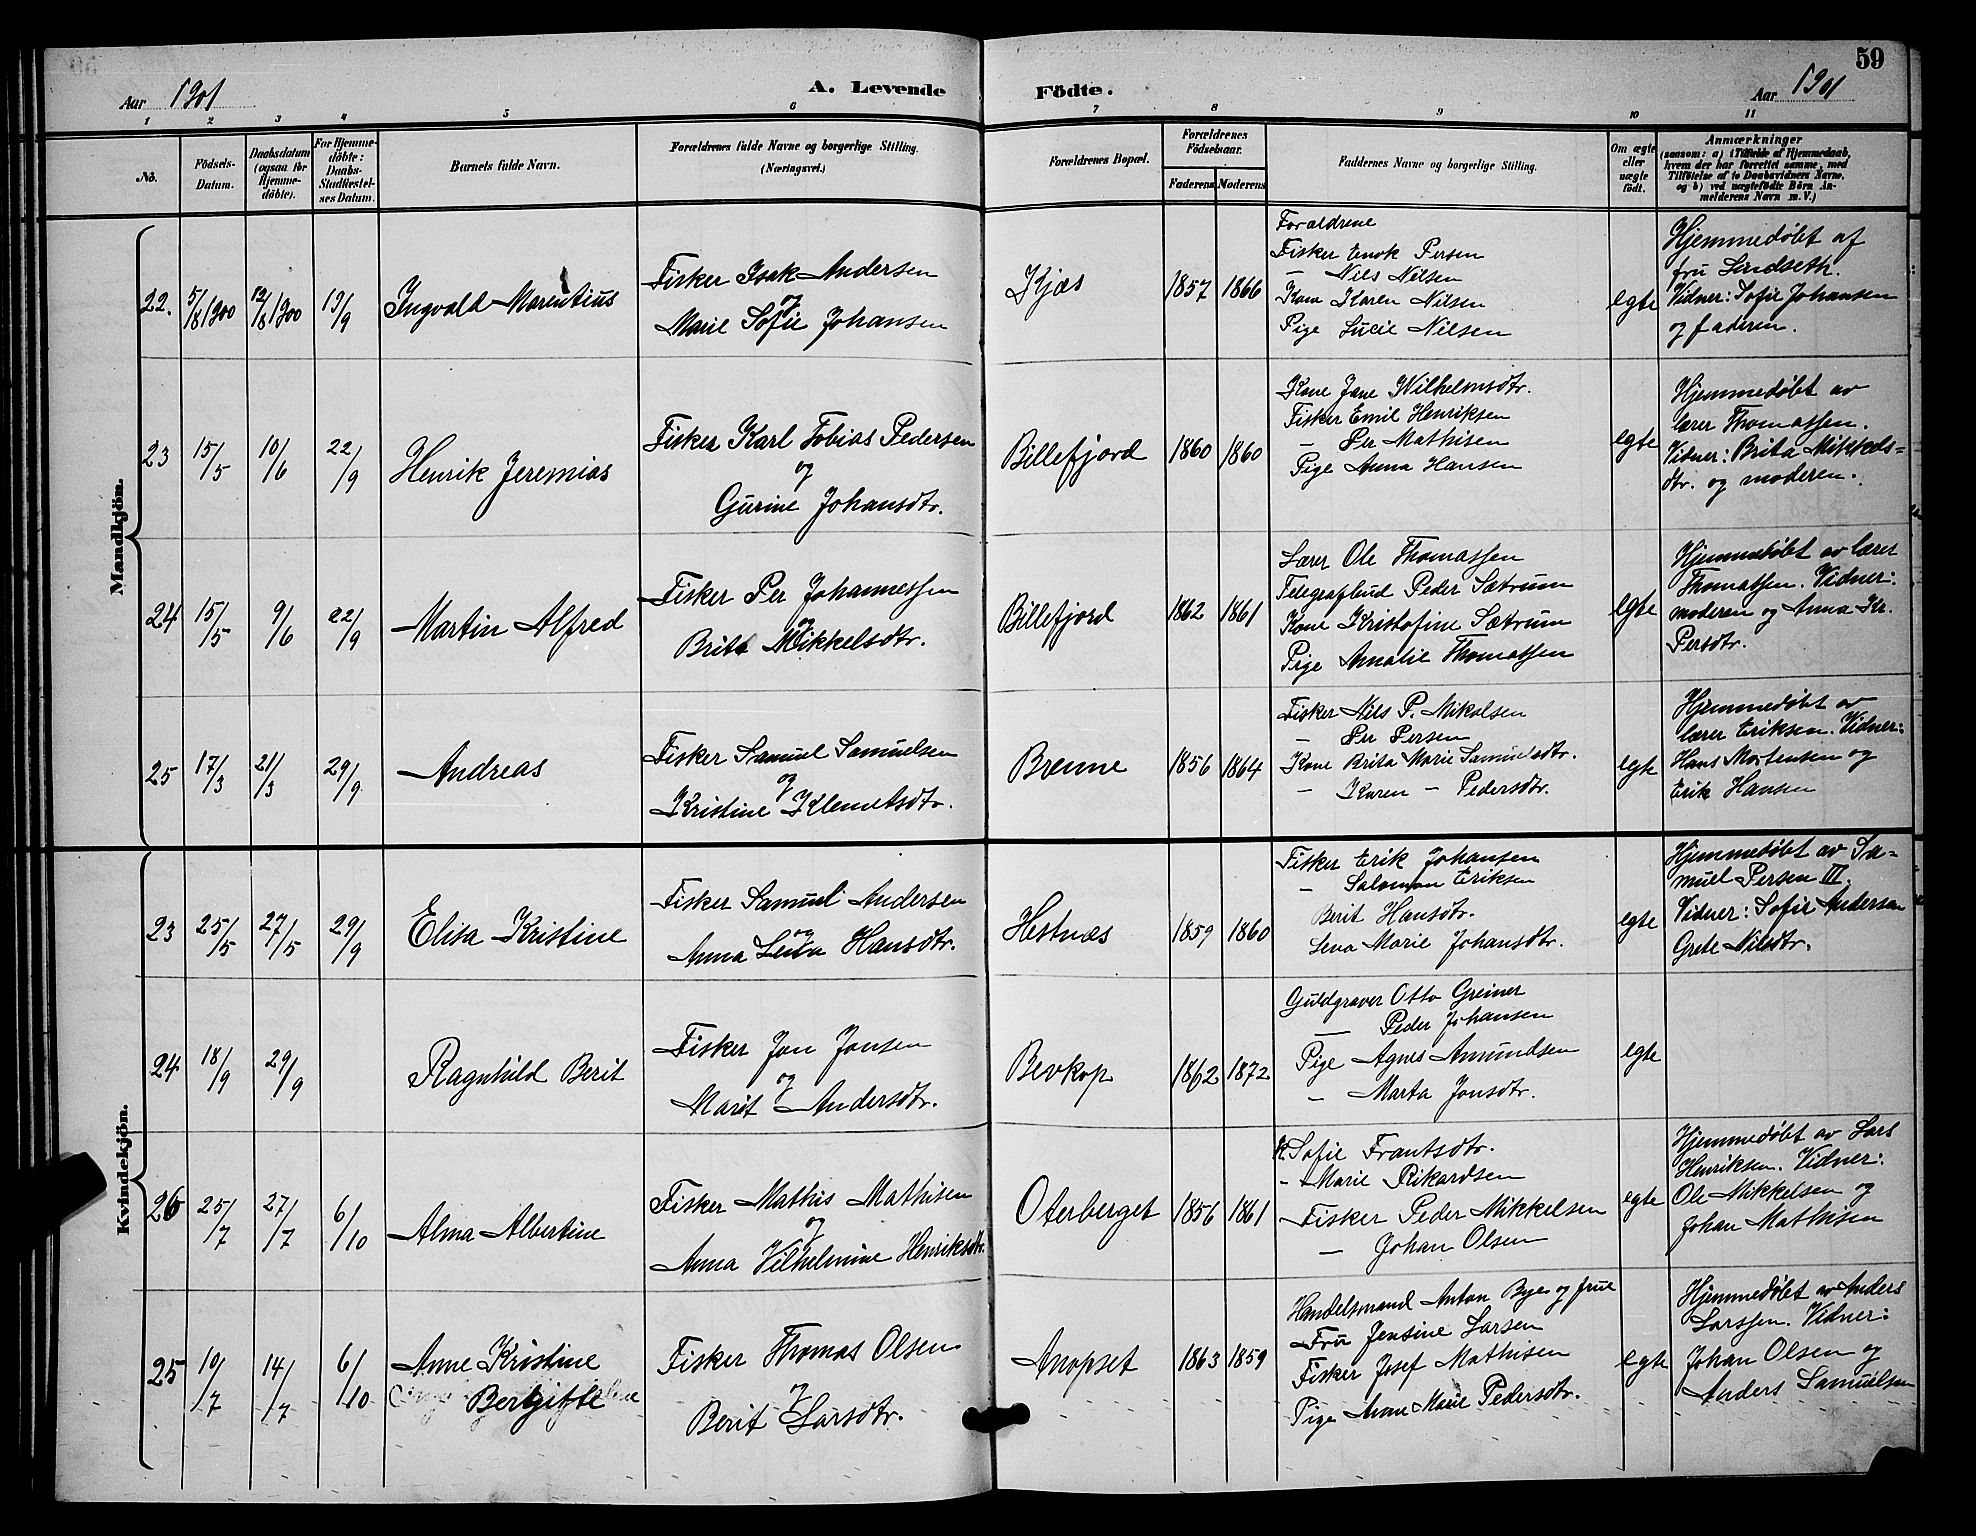 59
Aar 1901
A. Levende Födte.
Aar 1901
1 2 3 4 5 6 7 8 9 10 11
No.
Födsels-Datum.
Daabsdatum (ogsaa for Hjemme-döbte).
For Hjemme-döbte: Daabs-Stadfæstel-ses Datum.
Barnets fulde Navn.
Forældrenes fulde Navne og borgerlige Stilling. (Næringsvei.)
Forældrenes Bopæl.
Forældrenes Födselsaar.
Faderens Moderens
Faddernes Navne og borgerlige Stilling.
Om ægte eller uægte födt.
Anmærkninger
(saasom: a) i Tilfælde af Hjemmedaab, hvem der har forrettet samme, med Tilföielse af to Daabsvidners Navne, og b) ved uægtefödte Börn Anmelderens Navn m. V.)
Mandkjön.
22. 5/8 1900 12/8 1900 19/9
Ingvald Marentius
Fisker Isak Andersen
og
Marie Sofie Johansen
Kjæs
1857 1866
Forældrene
Fisker Enok Persen
— Nils Nilsen
Kone Karen Nilsen
Pige Lucie Nilsen
egte
Hjemmedøbt af
fru Lindseth.
Vidner: Sofie Johansen
og faderen.
23 15/5 10/6 22/9
Henrik Jeremias
Fisker Karl Tobias Pedersen
og
Gurine Johansdtr.
Billefjord
1860 1860
Kone Jane Wilhelmsdtr.
Fisker Emil Henriksen
— Per Mathisen
Pige Anna Hansen
egte
Hjemmedøbt av
lærer Thomassen.
Vidner: Brita Mikkels-
dtr. og moderen.
24 15/5 9/6 22/9
Martin Alfred
Fisker Per Johannessen
og
Brita Mikkelsdtr.
Billefjord
1862 1861
Lærer Ole Thomassen
Telegrafbud Peder Sætrum
Kone Kristofine Sætrum
Pige Amalie Thomassen
egte
Hjemmedøbt av lærer
Thomassen. Vidner:
moderen og Anna Kr.
Persdtr.
25 17/3 21/3 29/9
Andreas
Fisker Samuel Samuelsen
og
Kristine Klemetsdtr.
Brenne
1856 1864
Fisker Nils P. Mikalsen
— Per Persen
Kone Brita Marie Samuelsdtr.
— Karen — Pedersdtr.
egte
Hjemmedøbt av
lærer Eriksen. Vidner:
Hans Mortensen og
Erik Hansen
Kvindekjön.
23 25/5 27/5 29/9
Elisa Kristine
Fisker Samuel Andersen
og
Anna Hansdtr.
Hestnæs
1859 1860
Fisker Erik Johansen
— Salomon Eriksen
Berit Hansdtr.
Lena Marie Johansdtr.
egte
Hjemmedøbt av Sa-
muel Persen III.
Vidner: Sofie Andersen
Grete Nilsdtr.
24 18/9 29/9
Ragnhild Berit
Fisker Jon Jonsen
og
Marit Andersdtr.
Bevkop
1862 1872
Guldgraver Otto Greiner
— Peder Johansen
Pige Agnes Amundsen
— Marta Jonsdtr.
egte
26 25/7 27/7 6/10
Alma Albertine
Fisker Mathis Mathisen
og
Anna Vilhelmine Henriksdtr.
Oterberget
1856 1861
K. Sofie Frantsdtr.
- Marie Rikardsen
Fisker Peder Mikkelsen
— Johan Olsen
egte
Hjemmedøbt av Lars
Henriksen. Vidner:
Ole Mikkelsen og
Johan Mathisen
25 10/7 14/7 6/10
Anne Kristine
Bergitte
Fisker Thomas Olsen
og
Berit Larsdtr.
Anopset
1863 1859
Handelsmand Anton Bye og frue
Fru Jensine Larsen
Fisker Josef Mathisen
Pige Anne Marie Pedersdtr.
egte
Hjemmedøbt av Anders
Larssen. Vidner:
Johan Olsen og
Anders Samuelsen